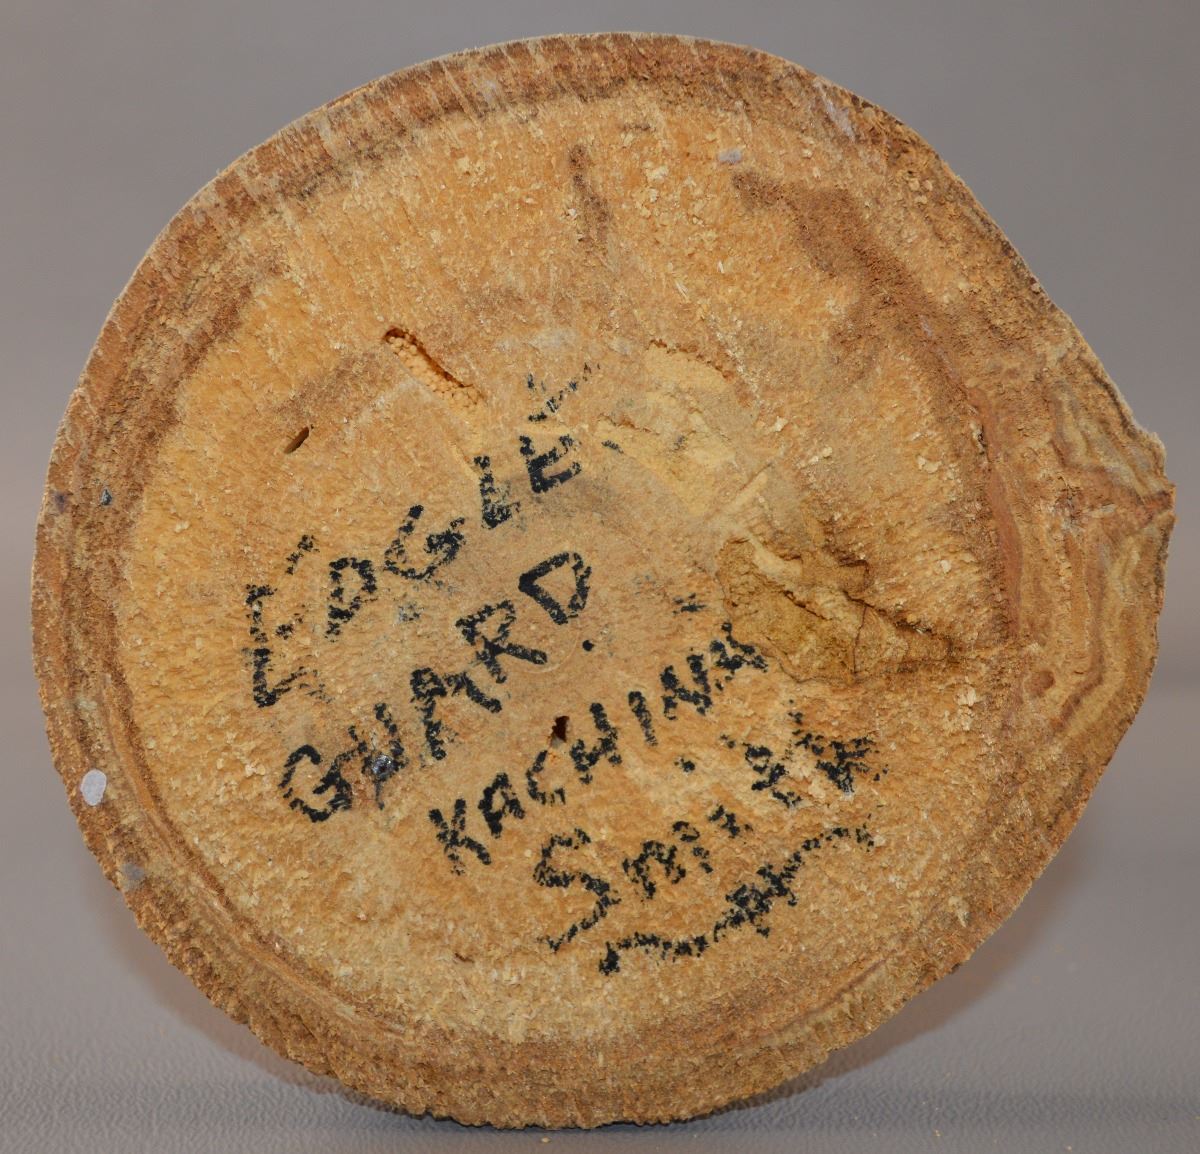 EDGLEY
GUARD.
KACHINA.
Smith